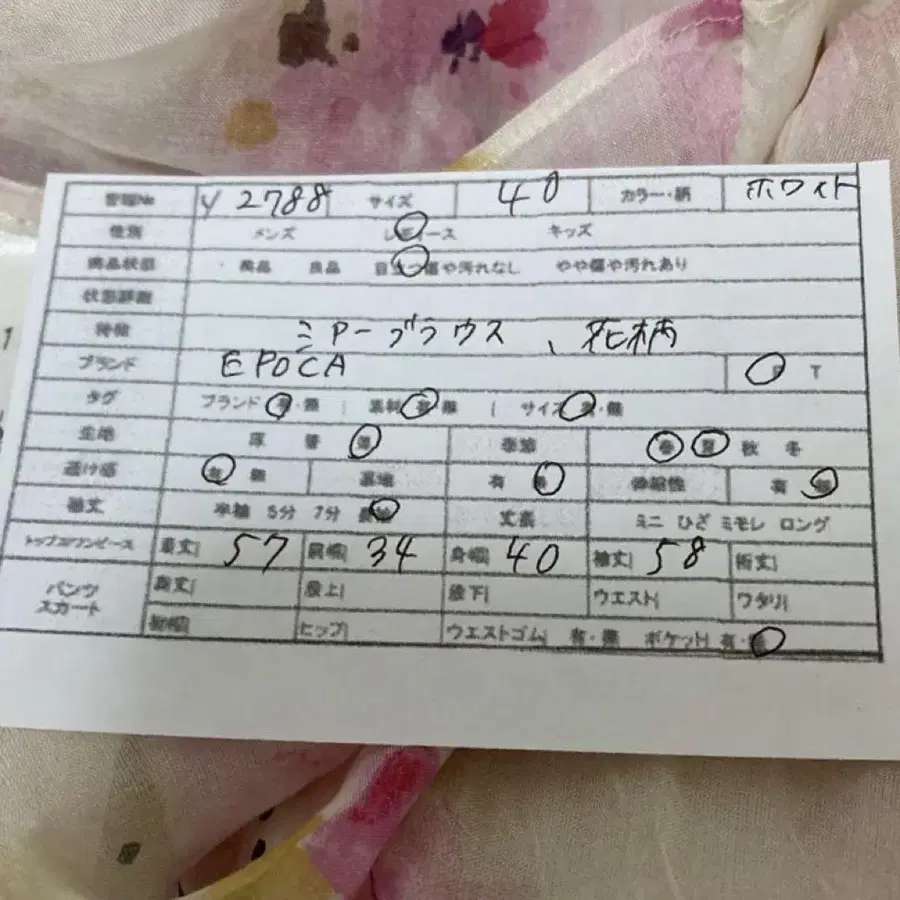 管理No y 2788 サイズ 40 カラー・柄 ホワイト
性別 メンズ レディース キッズ
商品状態 美品 良品 目立つ傷や汚れなし やや傷や汚れあり
状態詳細
特徴 シアーブラウス、花柄
ブランド EPOCA T
タグ ブランド 有・無 | 素材 有・無 | サイズ 有・無
生地 厚 普 薄 季節 春 夏 秋 冬
透け感 有 無 裏地 有 無 伸縮性 有 無
袖丈 半袖 5分 7分 長袖 丈感 ミニ ひざ ミモレ ロング
トップス/ワンピース 着丈| 57 肩幅| 34 身幅| 40 袖丈| 58 裄丈|
パンツ スカート 総丈| 股上| 股下| ウエスト| ワタリ|
裾幅| ヒップ| ウエストゴム| 有・無 ポケット| 有・無